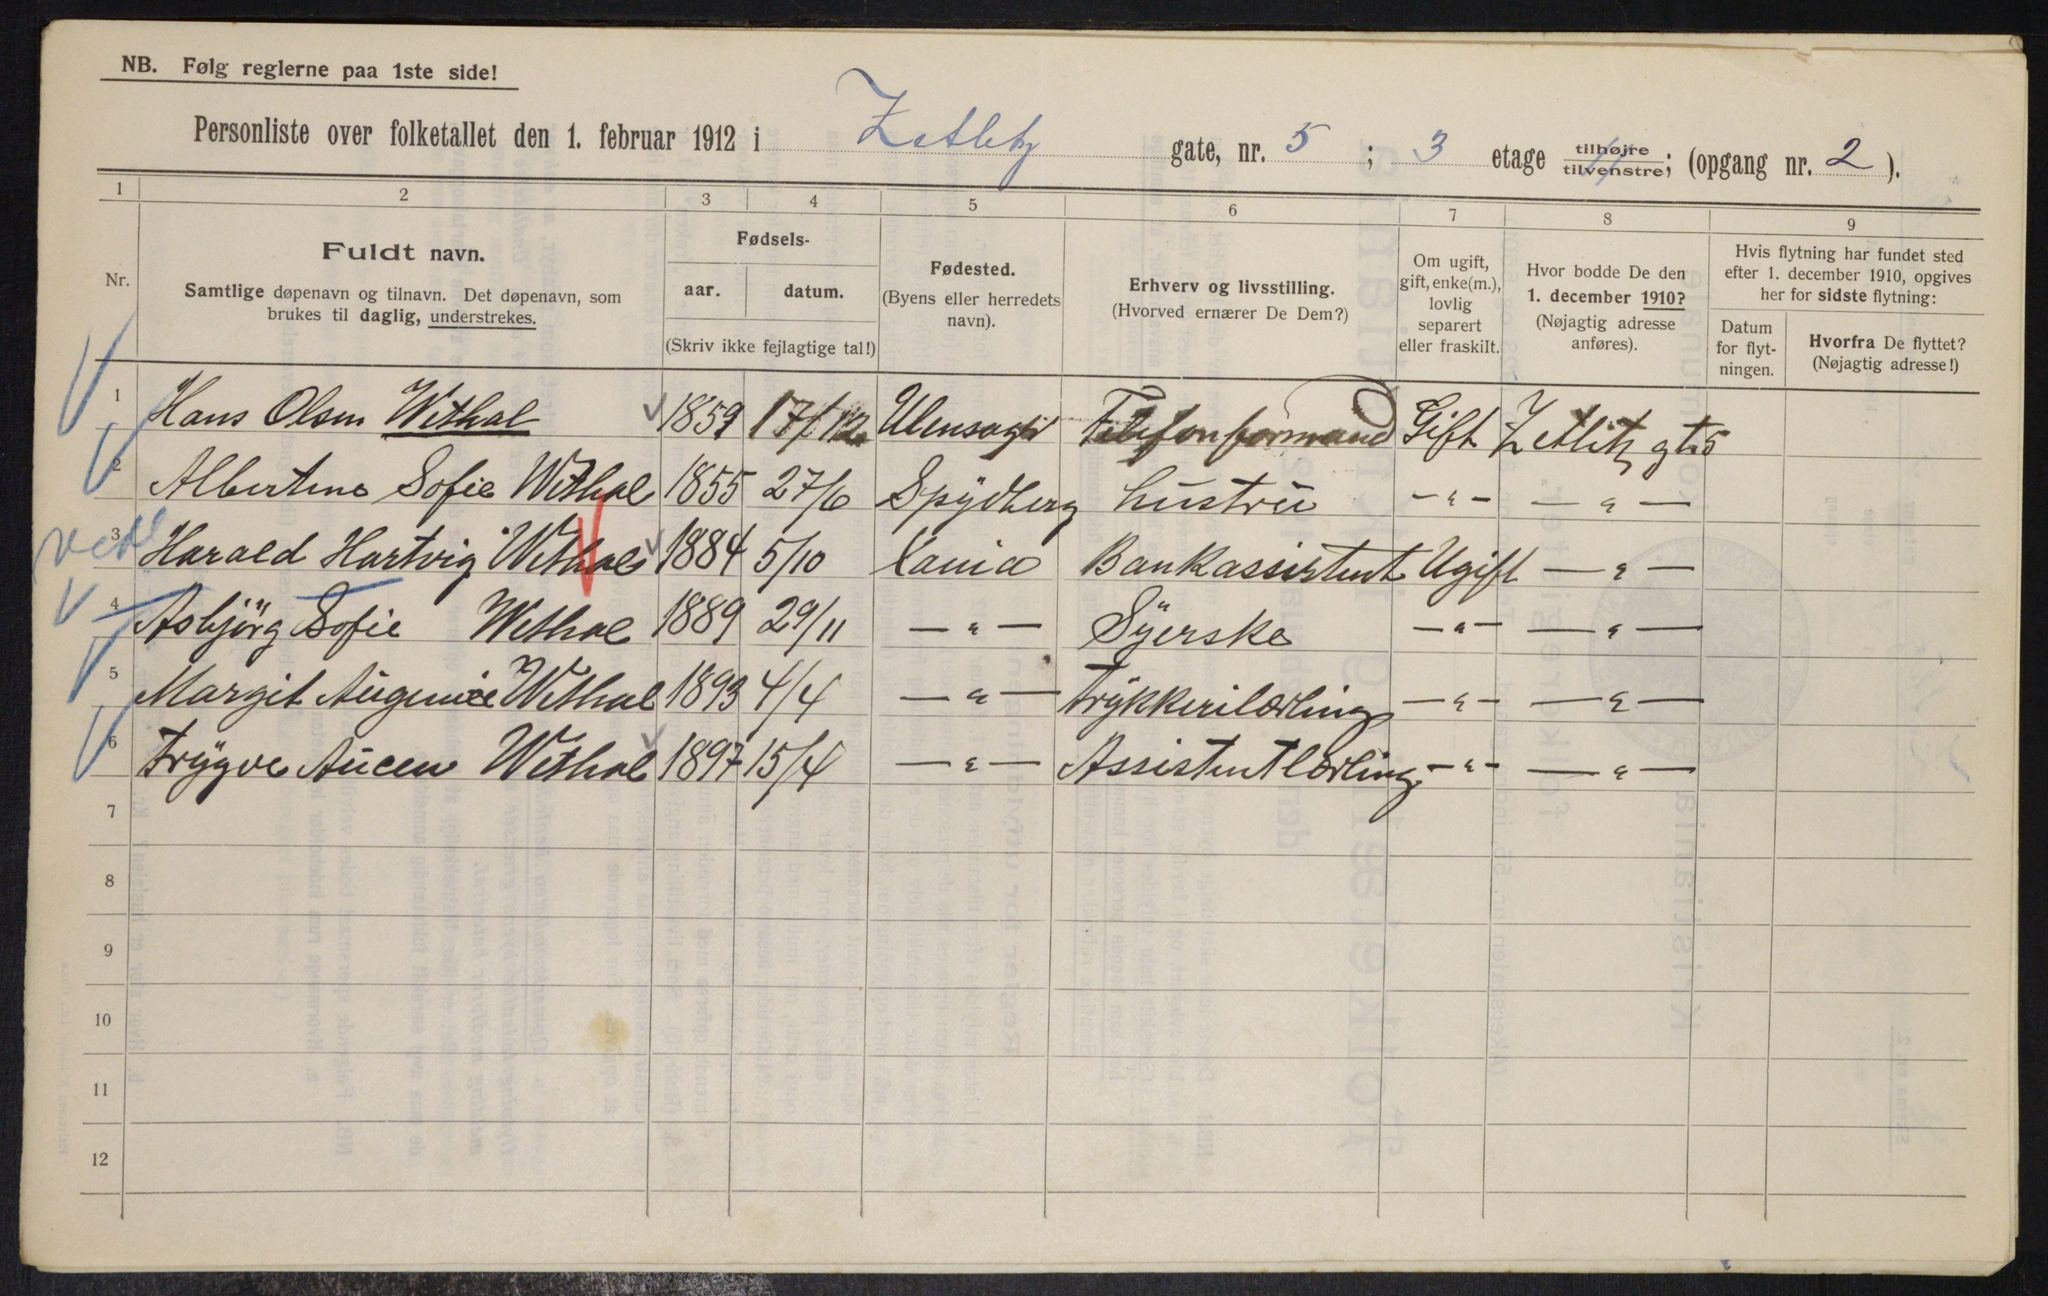 NB. Følg reglerne paa 1ste side!
Personliste over folketallet den 1. februar 1912 i Zetlitz gate, nr. 5 ; 3 etage tilhøjre tilvenstre; (opgang nr. 2 ).
1 2 3 4 5 6 7 8 9
Nr.
Fuldt navn.
Samtlige døpenavn og tilnavn. Det døpenavn, som
brukes til daglig, understrekes.
Fødsels-
aar. datum.
(Skriv ikke fejlagtige tal!)
Fødested.
(Byens eller herredets
navn).
Erhverv og livsstilling.
(Hvorved ernærer De Dem?)
Om ugift,
gift, enke(m.),
lovlig
separert
eller fraskilt.
Hvor bodde De den
1. december 1910?
(Nøjagtig adresse
anføres).
Hvis flytning har fundet sted
efter 1. december 1910, opgives
her for sidste flytning:
Datum
for flyt-
ningen.
Hvorfra De flyttet?
(Nøjagtig adresse!)
1 Hans Olsen Wethal 1859 17/12 Ulensager Telefonformand Gift Zetlitz gt. 5
2 Albertine Sofie Wethal 1855 27/6 Spydberg hustru — " — — " —
3 Harald Hartvig Wethal 1884 5/10 Kania Bankassistent Ugift — " —
4 Asbjörg Sofie Wethal 1889 29/11 — " — Syerske — " — — " —
5 Margit Augenie Wethal 1893 4/4 — " — Trykkerilærling — " — — " —
6 Trygve Aucen Wethal 1897 15/4 — " — Assistentlærling — " — — " —
7
8
9
10
11
12